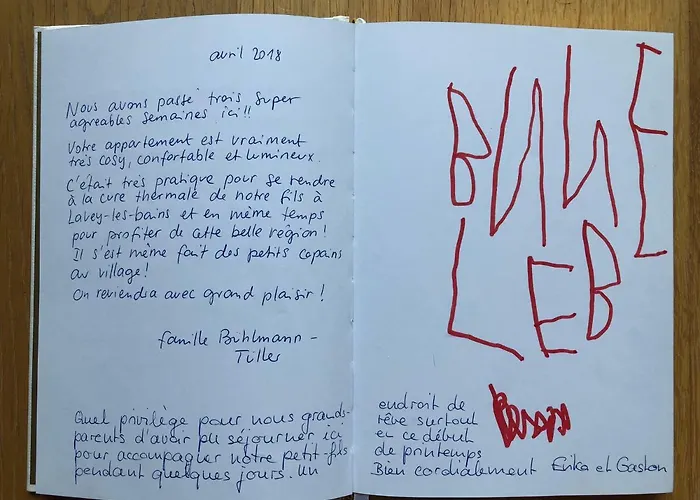 avril 2018
Nous avons passé trois super
agreables semaines ici!!
Votre appartement est vraiment
très cosy, confortable et lumineux.
C'était très pratique pour se rendre
à la cure thermale de notre fils à
Lavey-les-bains et en même temps
pour profiter de cette belle région!
Il s'est même fait des petits copains
au village!
On reviendra avec grand plaisir!
famille Bühlmann-
Tiller
Quel privilège pour nous grands-
parents d'avoir pu séjourner ici
pour accompagner notre petit-fils
pendant quelques jours. Un
LEB
endroit de
rêve surtout
en ce début
de printemps
Bien cordialement Erika et Gaston